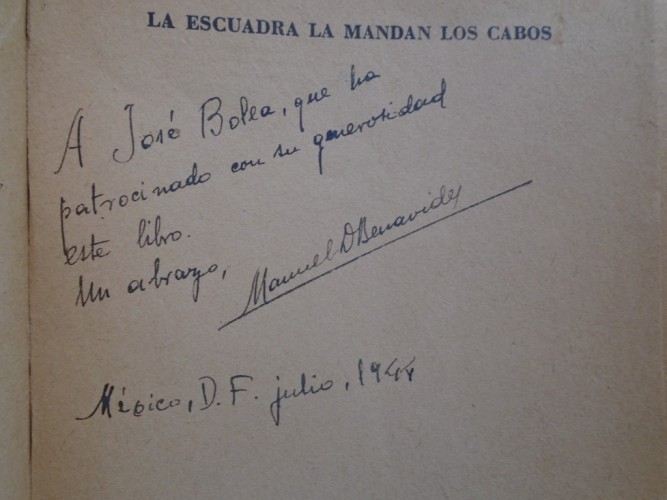 LA ESCUADRA LA MANDAN LOS CABOS
A José Bolea, que ha
patrocinado con su generosidad
este libro.
Un abrazo,
Manuel D Benavides
México, D. F. julio, 1944